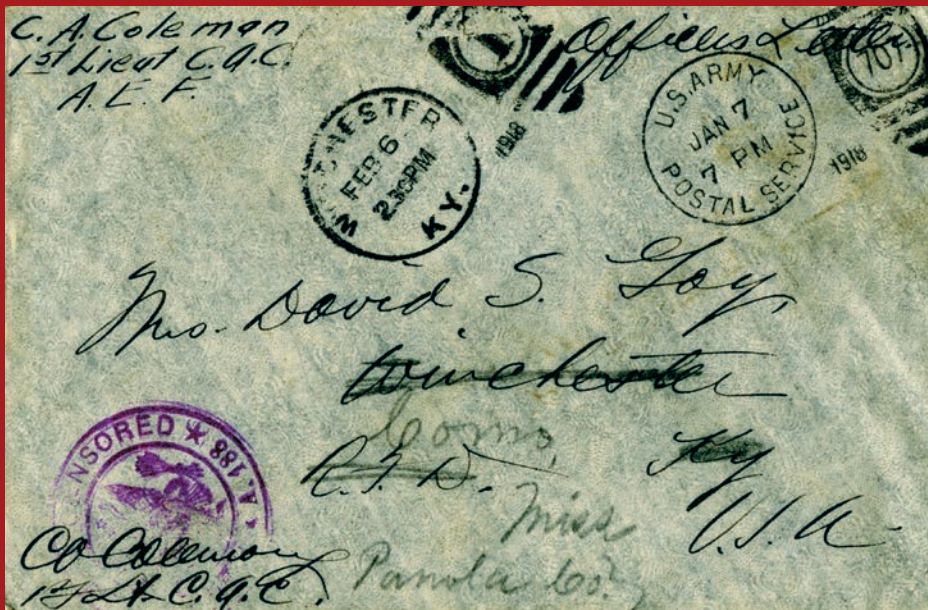 C. A. Coleman
1st Lieut C.A.C.
A. E. F.
Officers Letter
WINCHESTER
FEB 6
230PM
KY.
1918
U.S. ARMY
JAN 7
7 PM
POSTAL SERVICE
1918
701
Mrs. David S. Gay,
Winchester
Como,
R.F.D. Ky
Miss
U.S.A
Panola Co.
CENSORED ★ A.188
CA Coleman
1st Lt. C.A.C.